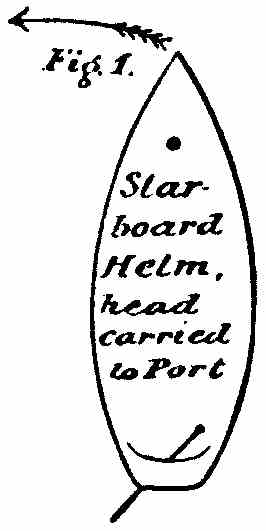 Fig. 1.
Star-
board
Helm,
head
carried
to Port